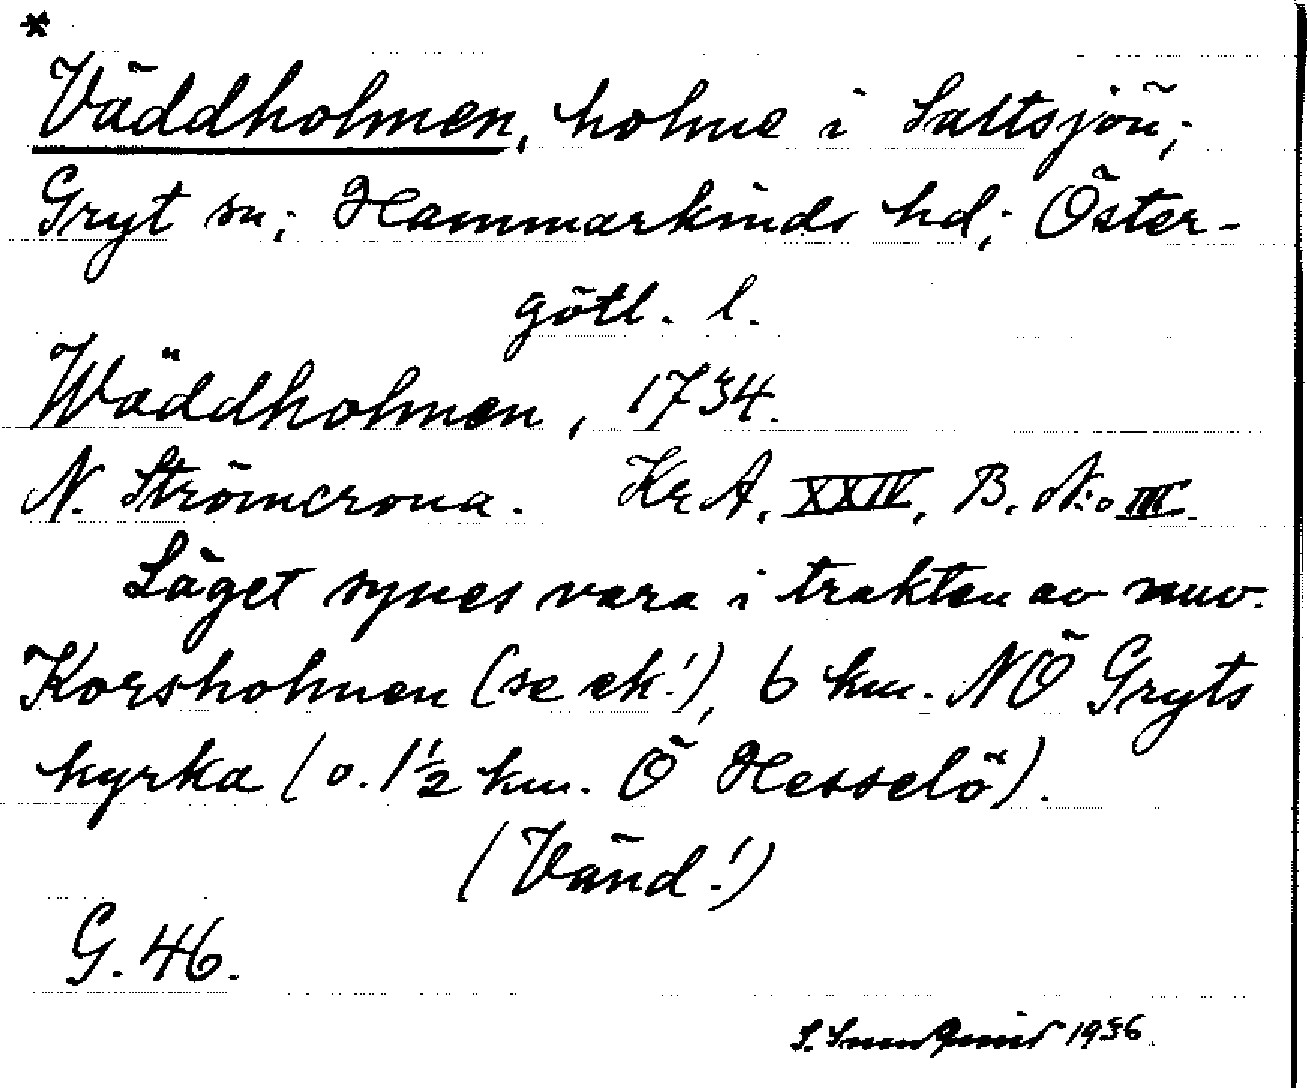 *
Väddholmen, holme i Saltsjön;
Gryt sn; Hammarkinds hd; Öster-
götl. l.
Wäddholmen, 1734.
N. Strömcrona. Kr A, XXIV, B. N:o III.
Läget synes vara i trakten av nuv.
Korsholmen (se ek!), 6 km. NÖ Gryts
kyrka (o. 1½ km. Ö Hesselö).
(Vänd!)
G. 46.
S. 1936.